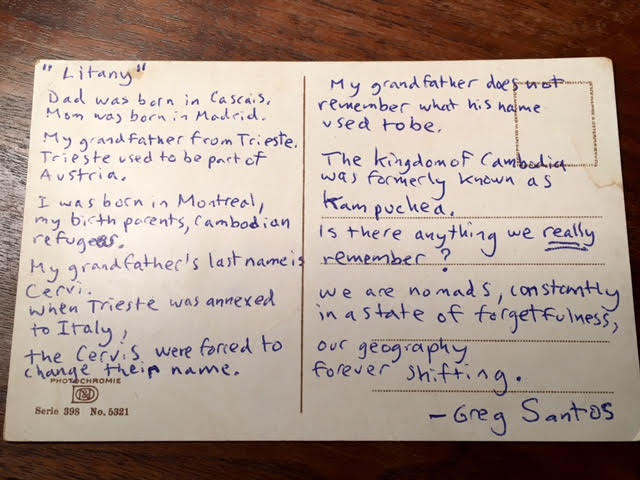 "Litany"
Dad was born in Cascais.
Mom was born in Madrid.
My grandfather from Trieste.
Trieste used to be part of
Austria.
I was born in Montreal,
my birth parents, Cambodian
refugees.
My grandfather's last name is
Cervi.
When Trieste was annexed
to Italy,
the Cervis were forced to
change their name.
PHOTOCHROMIE
Serie 398 No. 5321
My grandfather does not
remember what his name
used to be.
The kingdom of Cambodia
was formerly known as
Kampuchea.
Is there anything we really
remember?
We are nomads, constantly
in a state of forgetfulness,
our geography
forever shifting.
- Greg Santos